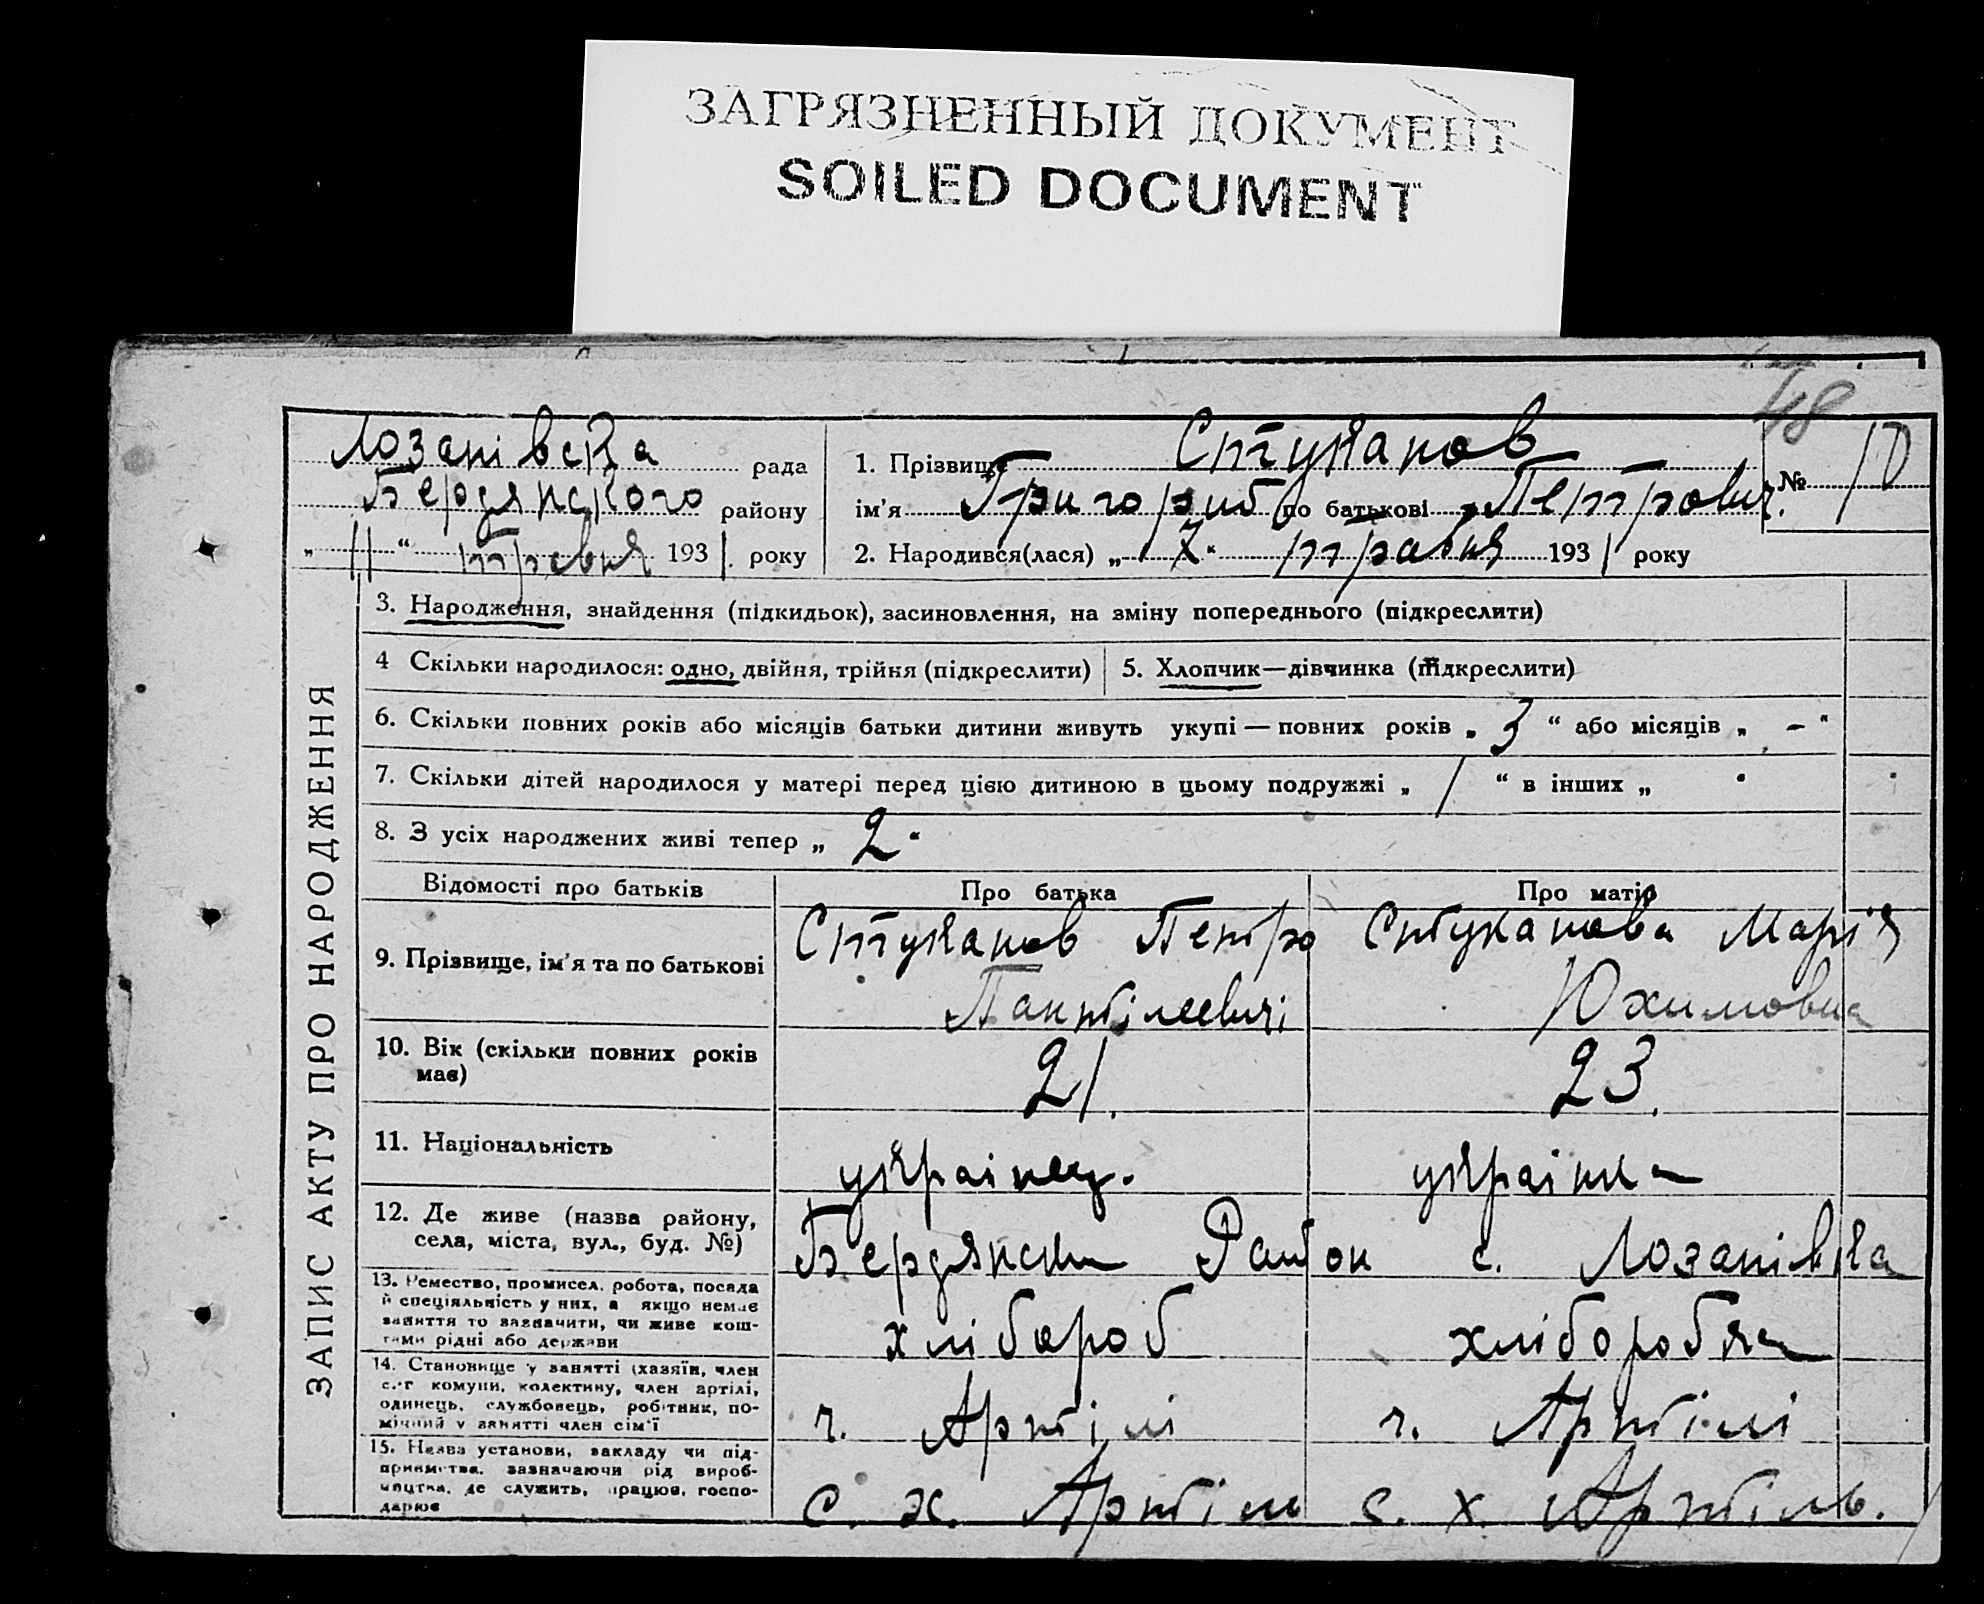 ЗАГРЯЗНЕННЫЙ ДОКУМЕНТ
SOILED DOCUMENT
48
Лозанівска рада
Бердянского району
„ 11 “ травня 1931. року
1. Прізвище Стуканов
ім'я Григорий по батькові Петрович.
2. Народився(лася) „ 7 “ травня 1931 року
№ 10
ЗАПИС АКТУ ПРО НАРОДЖЕННЯ
3. Народження, знайдення (підкидьок), засиновлення, на зміну попереднього (підкреслити)
4 Скільки народилося: одно, двійня, трійня (підкреслити)
5. Хлопчик—дівчинка (підкреслити)
6. Скільки повних років або місяців батьки дитини живуть укупі — повних років „ 3 “ або місяців „ - “
7. Скільки дітей народилося у матері перед цією дитиною в цьому подружжі „ 1 “ в інших „ “
8. З усіх народжених живі тепер „ 2 “
Відомості про батьків Про батька Про матір
9. Прізвище, ім'я та по батькові Стуканов Петро Стуканова Марія
Пантілеевичі Юхимовна
10. Вік (скільки повних років
має) 21. 23.
11. Національність українец. українка
12. Де живе (назва району,
села, міста, вул., буд. №) Бердянськи Район с. Лозанівка
13. Ремество, промисел, робота, посада
й спеціяльність у них, а якщо немає
заняття то зазначити, чи живе кош-
тами рідні або держави
хлібороб хліборобка
14. Становище у занятті (хазяїн, член
с.-г комуни, колективу, член артілі,
одинець, службовець, робітник, по-
мічний у занятті член сім'ї
ч. Артілі ч. Артілі
15. Назва установи, закладу чи під-
приємства, зазначаючи рід вироб-
ництва, де служить, працює, госпо-
дарює
с. х. Артіль с. х. Артіль.